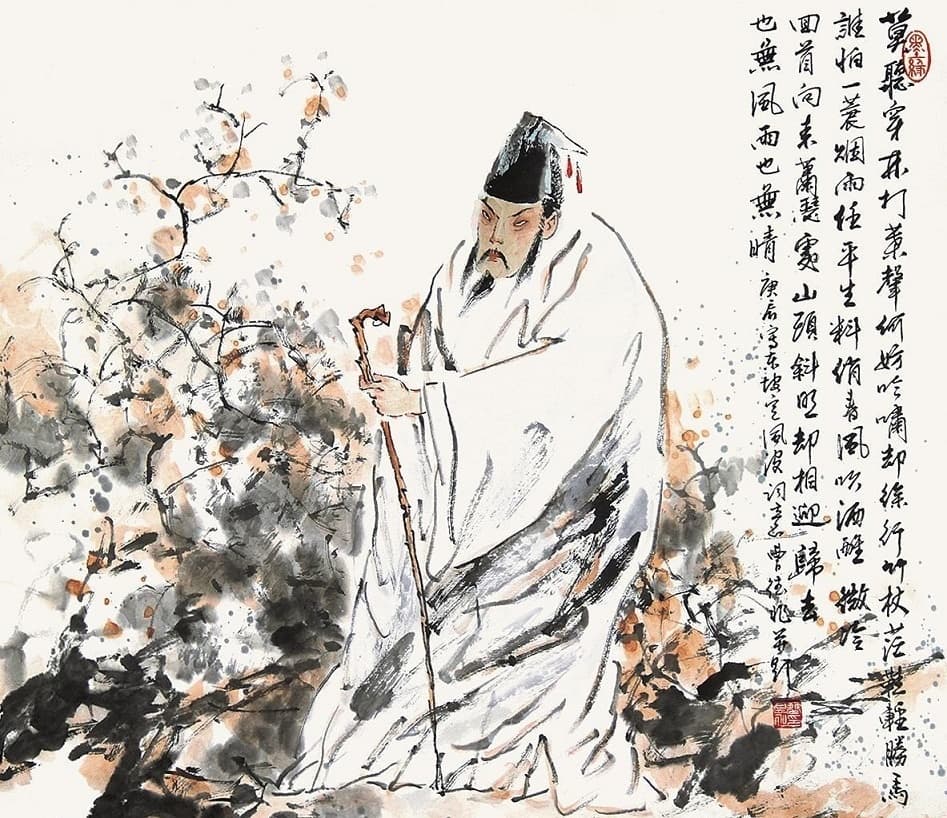 墨缘
莫聽穿林打葉聲何妨吟嘯却徐行竹杖芒鞋輕勝馬
誰怕一蓑烟雨任平生料峭春風吹酒醒微冷
回首向来蕭瑟處山頭斜照却相迎歸去
也無風雨也無晴 庚辰写東坡定風波詞意曹